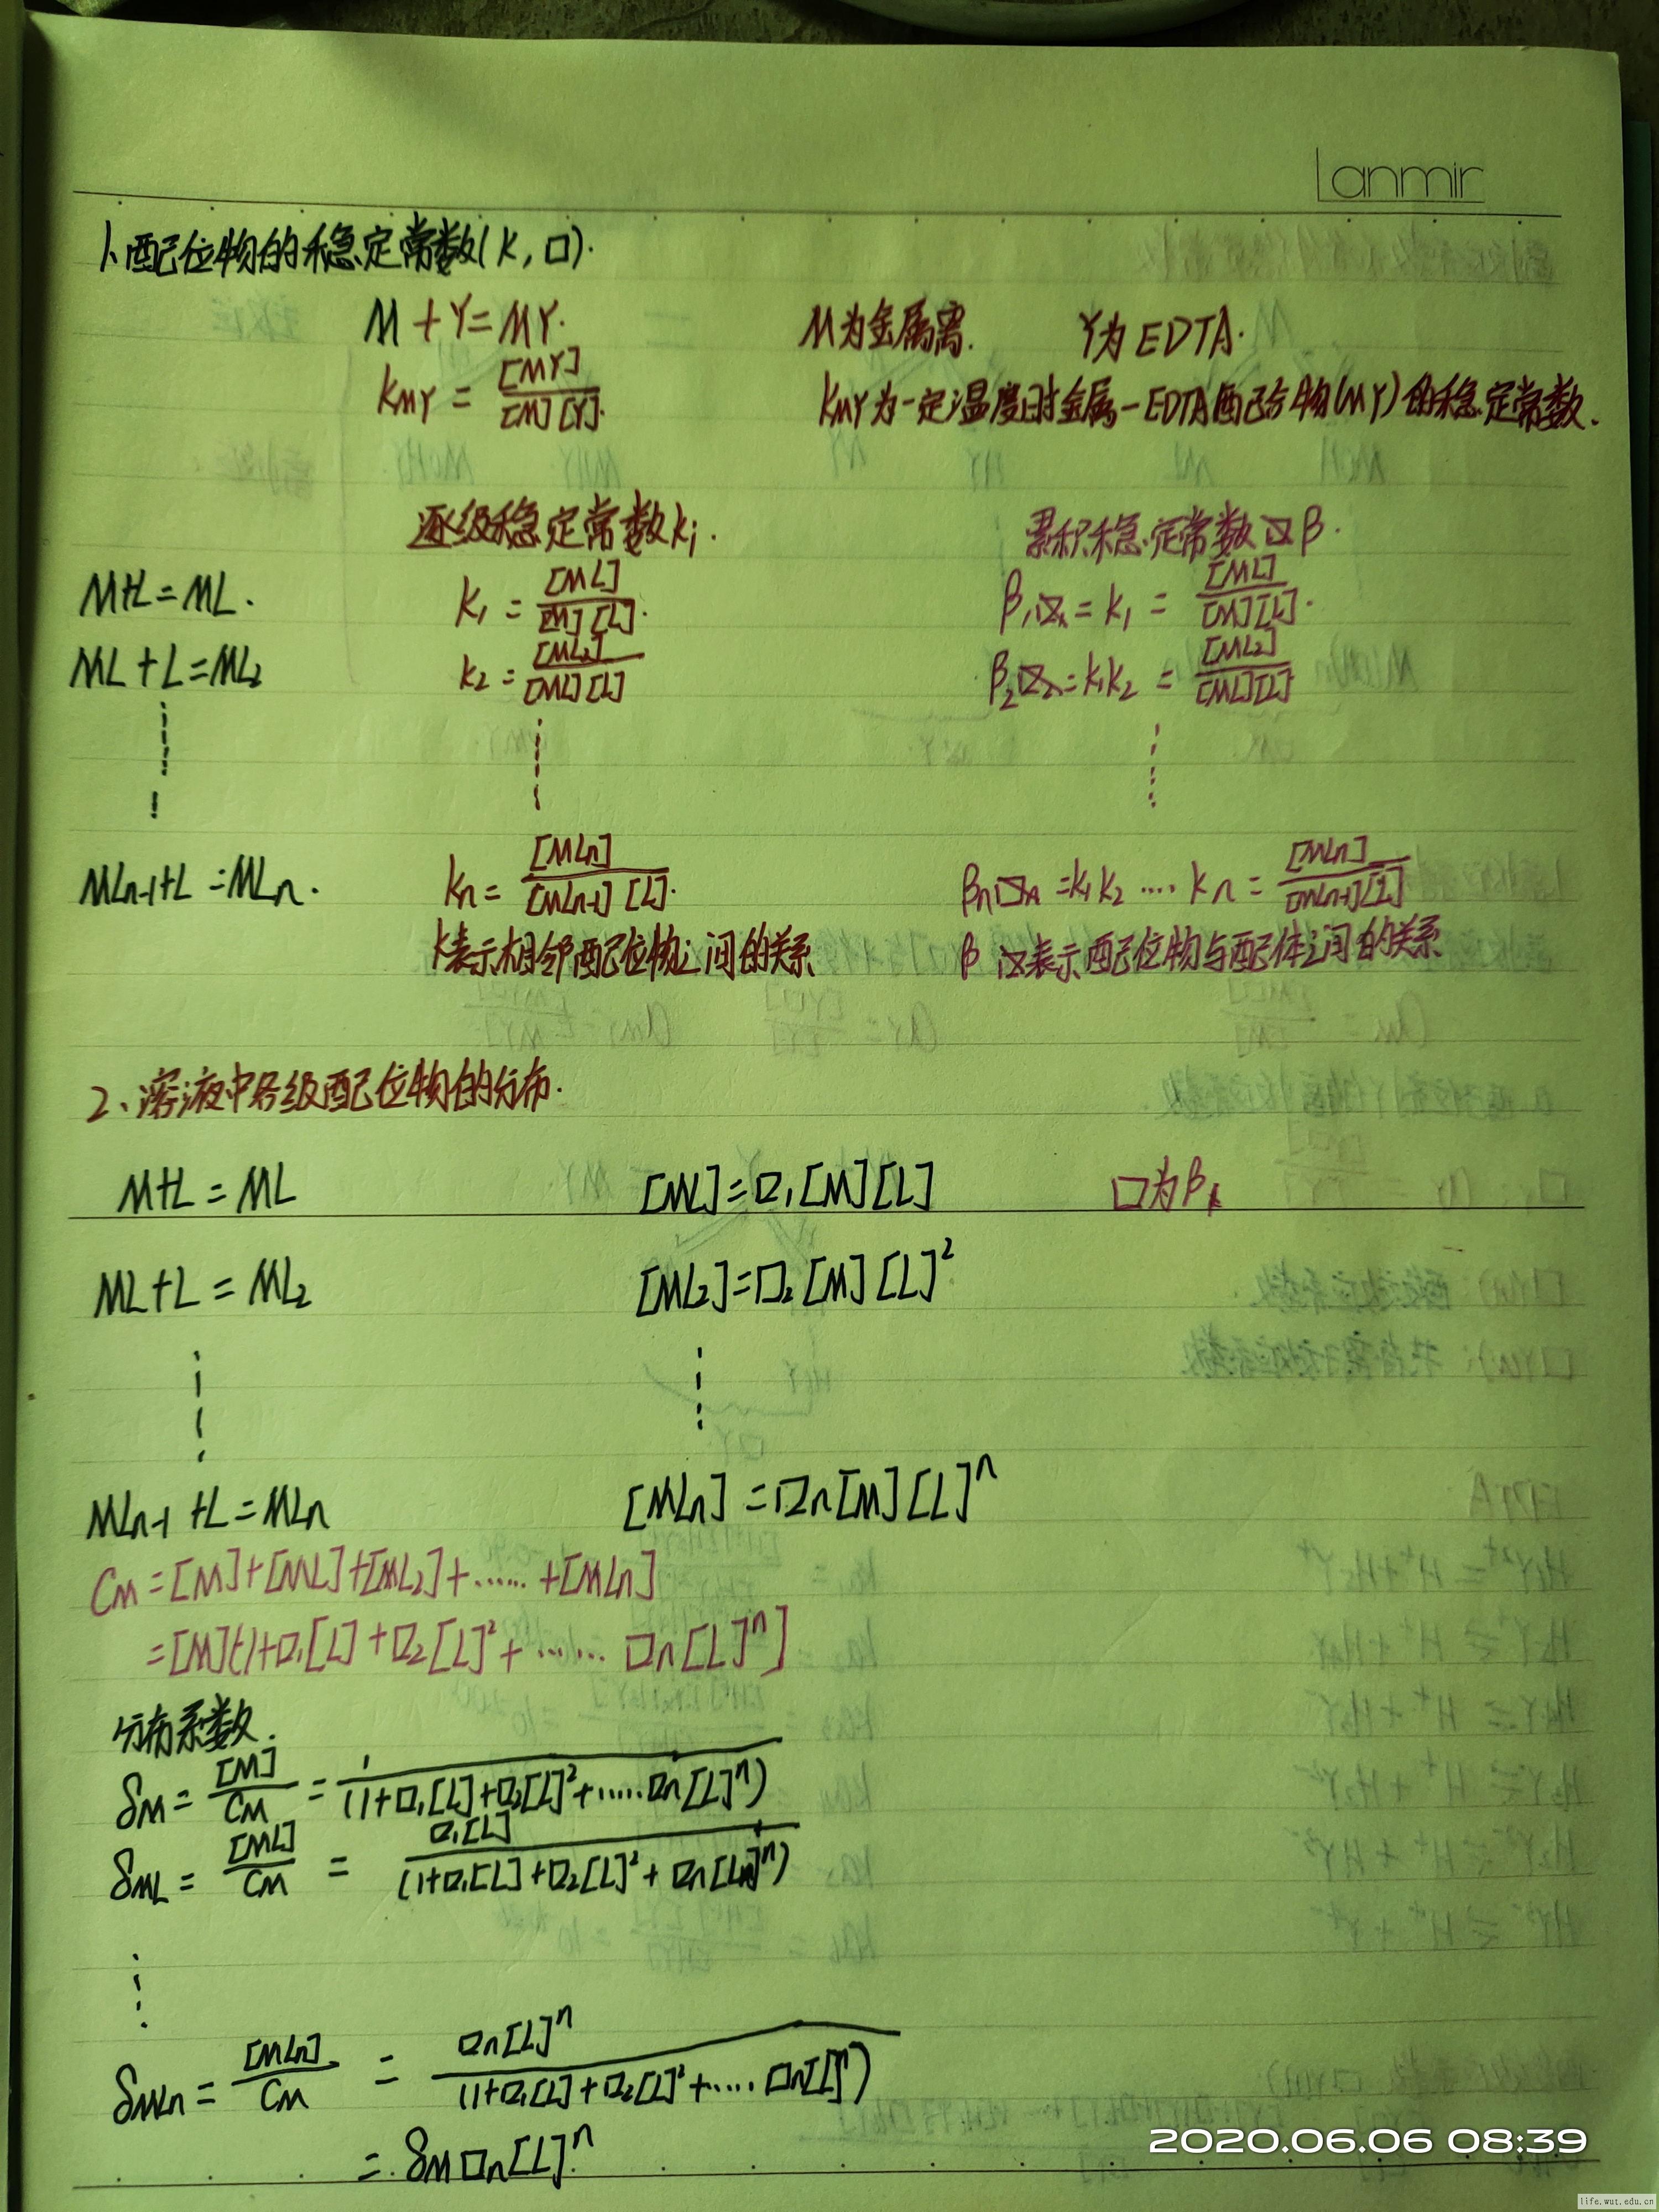 Lanmir
1.配位物的稳定常数(K,口).
M+Y=MY. M为金属离. Y为EDTA.
KMY = [MY]/[M][Y]. KMY为一定温度时金属-EDTA配合物(MY)的稳定常数.
逐级稳定常数Ki. 累积稳定常数 β.
M+L=ML. K1 = [ML]/[M][L]. β1 = K1 = [ML]/[M][L].
ML+L=ML2 K2 = [ML2]/[ML][L] β2 = K1K2 = [ML2]/[ML][L]
MLn-1+L=MLn. Kn = [MLn]/[MLn-1][L]. βn = K1K2 .... Kn = [MLn]/[MLn-1][L]
K表示相邻配位物之间的关系 β 表示配位物与配体之间的关系
2、溶液中各级配位物的分布.
M+L=ML [ML]=口1[M][L] 口为β
ML+L=ML2 [ML2]=口2[M][L]²
MLn-1+L=MLn [MLn]=口n[M][L]ⁿ
CM=[M]+[ML]+[ML2]+......+[MLn]
=[M](1+口1[L]+口2[L]²+...... 口n[L]ⁿ]
分布系数.
δM = [M]/CM = 1/(1+口1[L]+口2[L]²+.....口n[L]ⁿ)
δML = [ML]/CM = 口1[L]/(1+口1[L]+口2[L]²+口n[L]ⁿ)
δMLn = [MLn]/CM = 口n[L]ⁿ/(1+口1[L]+口2[L]²+..... 口n[L]ⁿ)
= δM口n[L]ⁿ
2020.06.06 08:39
life.wut.edu.cn